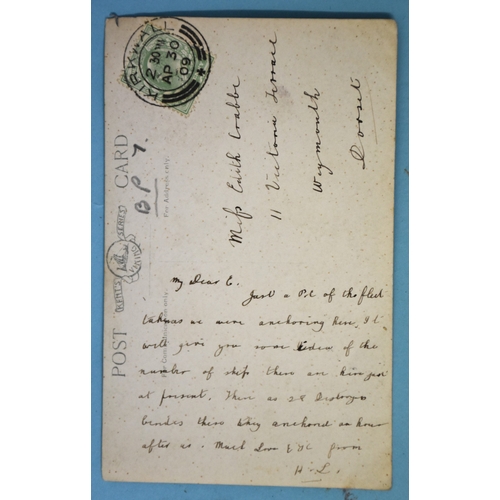 KIRKWALL
2.30PM
AP 30
09
POST CARD
B.P 7.
For Address only.
Miss Edith Crabbe
11 Victoria Terrace
Weymouth
Dorset
My Dear E.
Just a P.C of the fleet
taken as we were anchoring here, It
will give you some idea of the
number of ships there are here just
at present. There as 28 Destroyers
besides these they anchored an hour
after us. Much Love & from
H. L.